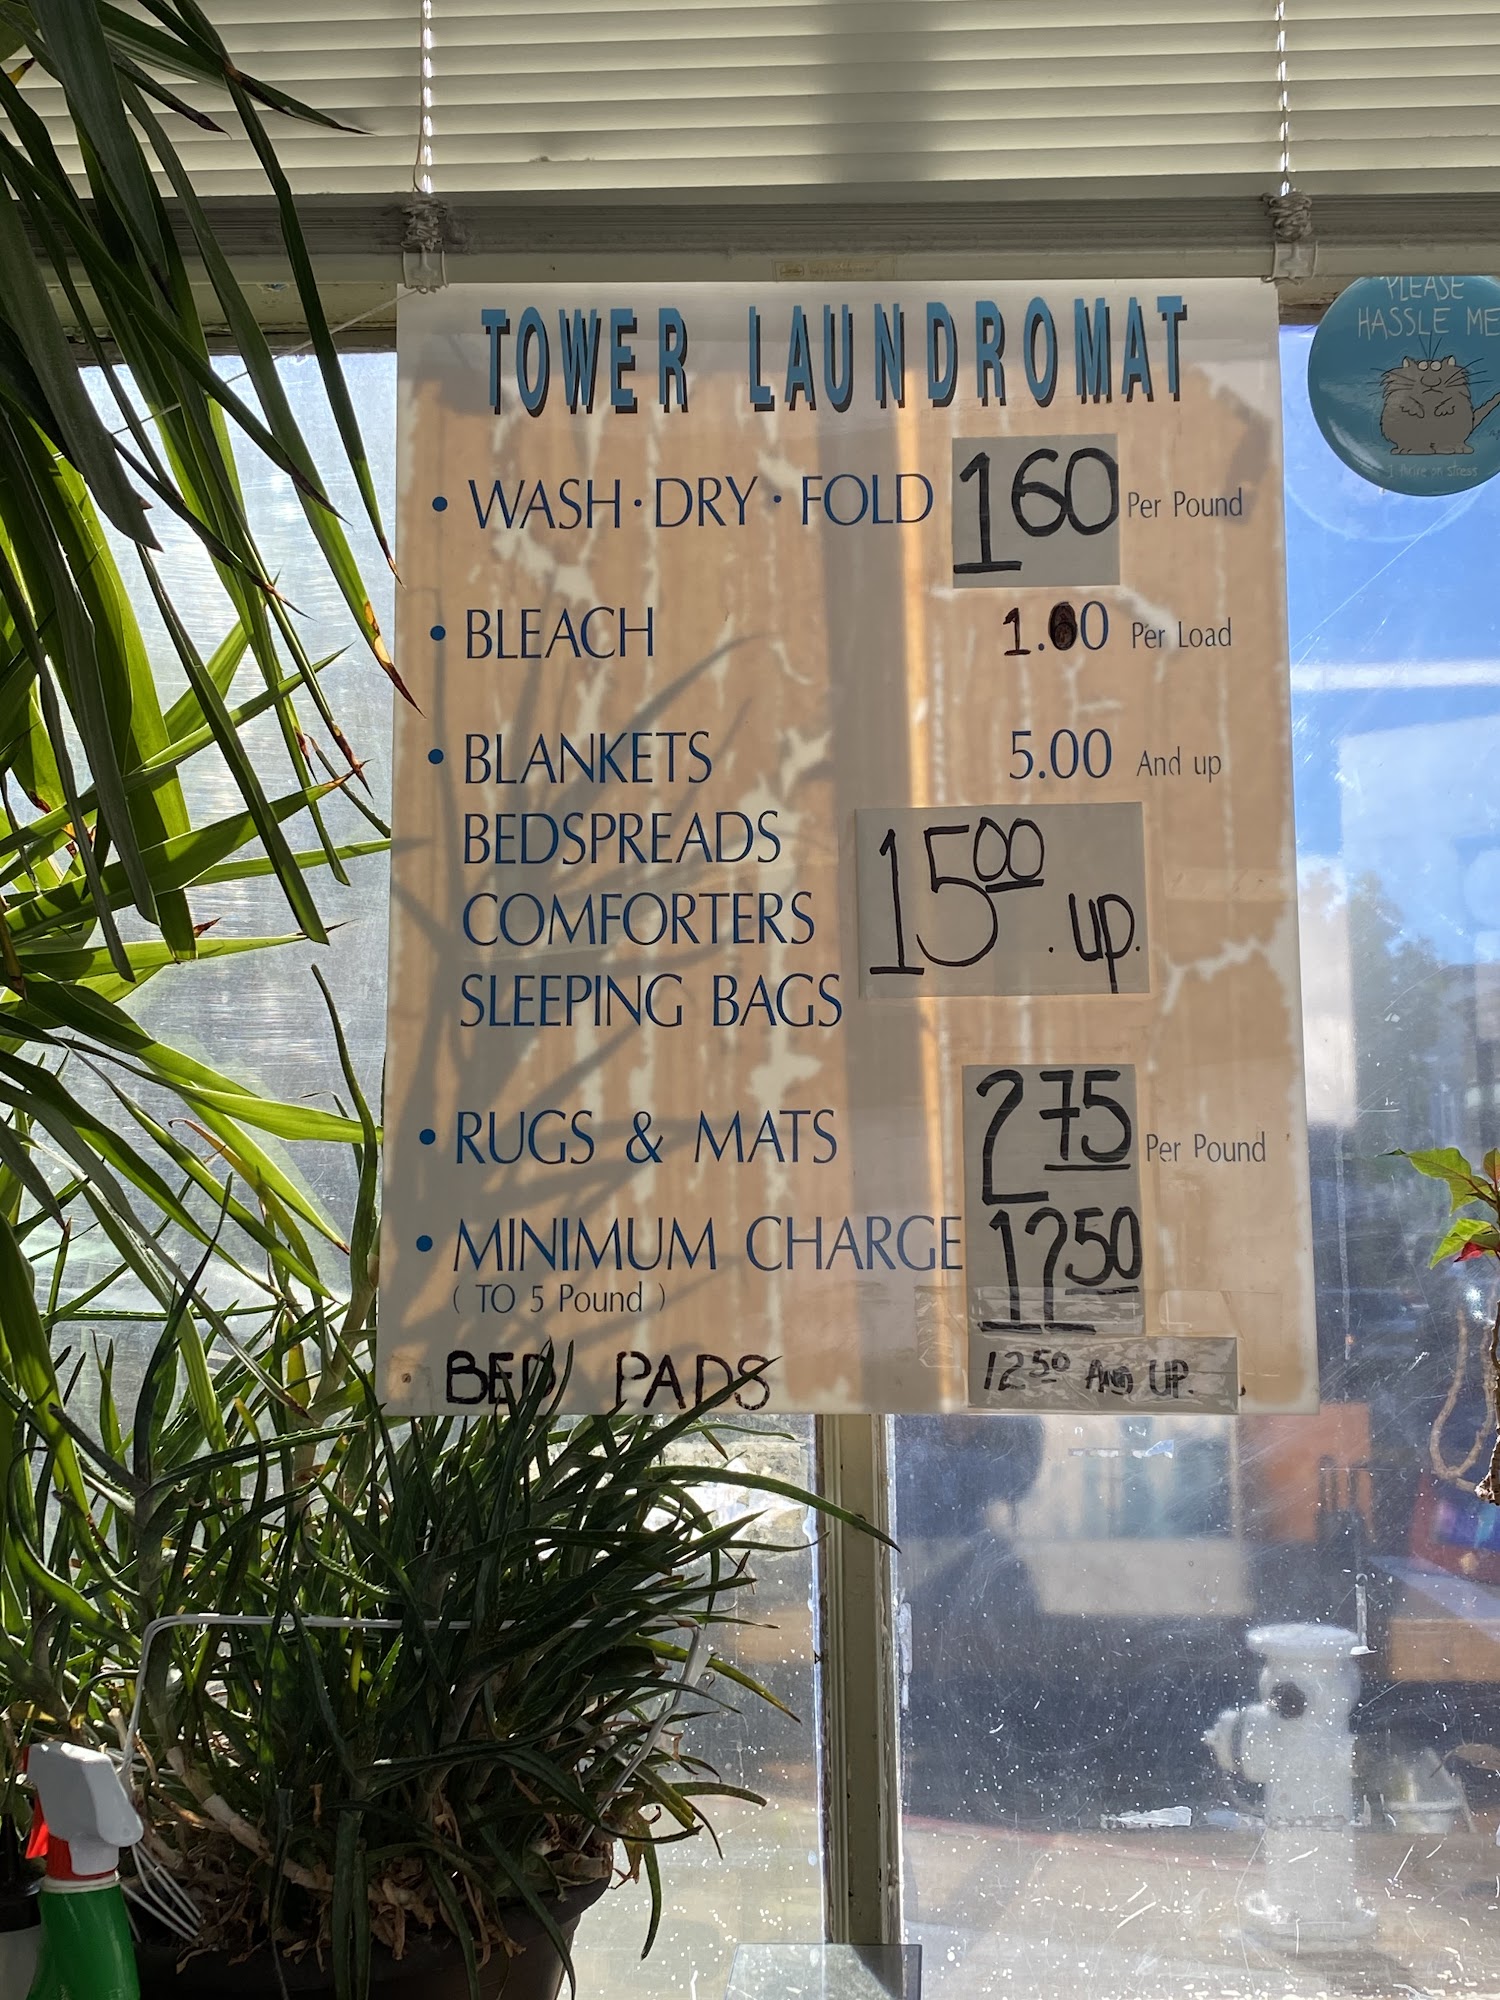 TOWER LAUNDROMAT
• WASH · DRY · FOLD 160 Per Pound
• BLEACH 1.00 Per Load
• BLANKETS 5.00 And up
BEDSPREADS
COMFORTERS 15 00 . up.
SLEEPING BAGS
• RUGS & MATS 2 75 Per Pound
• MINIMUM CHARGE 12 50
( TO 5 Pound )
BED PADS 12 50 AND UP.
PLEASE
HASSLE ME
I thrive on stress